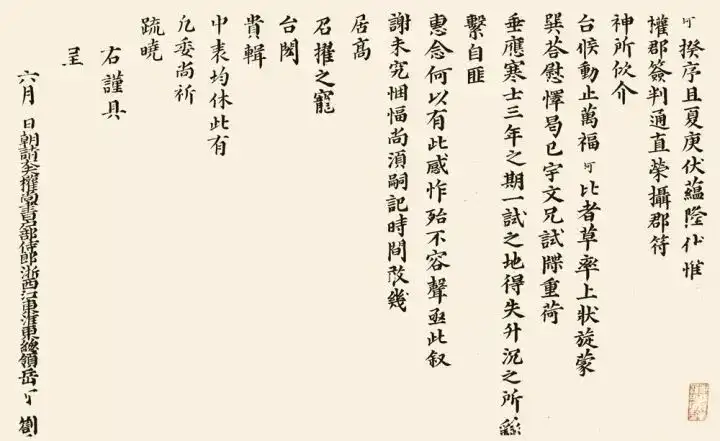 可揆序且夏庚伏蘊隆伏惟
權郡簽判通直榮攝郡符
神所佽介
台候動止萬福可比者草率上狀旋蒙
巽荅慰懌曷已宇文兄試牒重荷
垂應寒士三年之期一試之地得失升沉之所繇
繫自匪
惠念何以有此感怍殆不容聲亟此叙
謝未究悃愊尚須嗣記時間茂幾
居高
召擢之寵
台閎
貴輯
中表均休此有
凡委尚祈
疏曉
右謹具
呈
六月 日朝請大夫權尚書戶部侍郎浙西江東淮東總領岳可劄